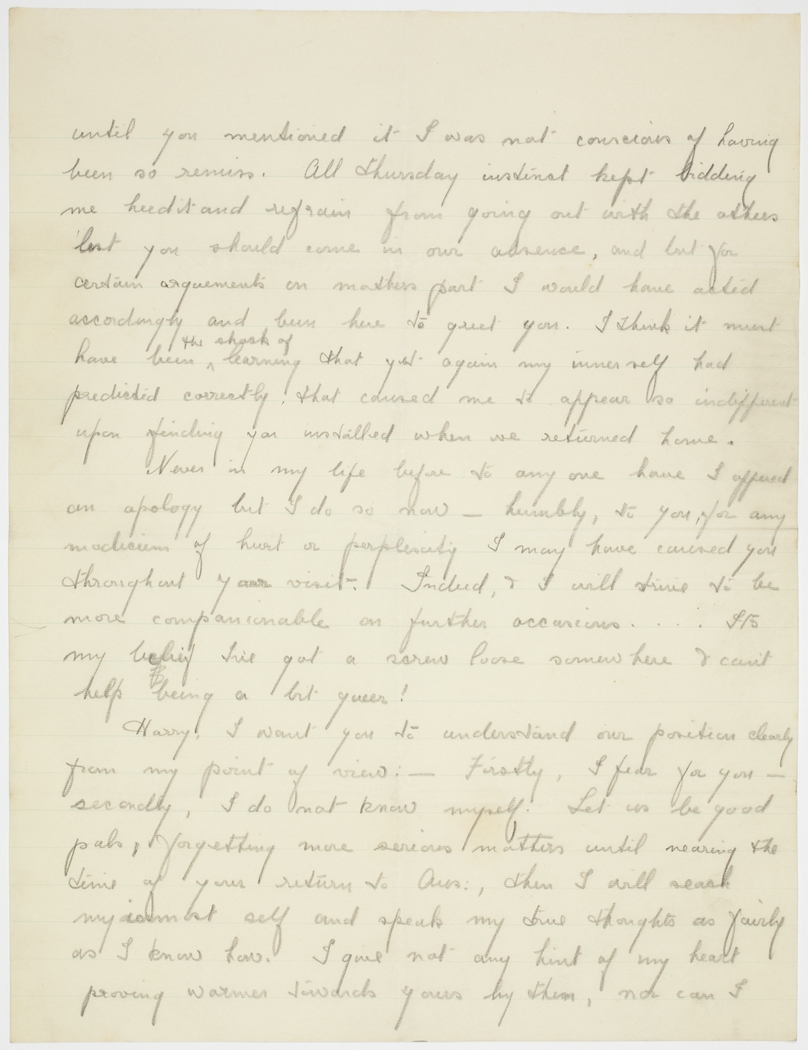 until you mentioned it I was not conscious of having
been so remiss. All Thursday instinct kept bidding
me heed it and refrain from going out with the others
lest you should come in our absence, and but for
certain arguements on mothers part I would have acted
accordingly and been here to greet you. I think it must
have been the shock of learning that yet again my inner self had
predicted correctly, that caused me to appear so indifferent
upon finding you installed when we returned home.
Never in my life before to any one have I offered
an apology but I do so now — humbly, to you, for any
modicium of hurt or perplexity I may have caused you
throughout your visit. Indeed, & I will strive to be
more companionable on further occasions. . . . Its
my belief I've got a screw loose somewhere & can't
help being a bit queer!
Harry, I want you to understand our position clearly
from my point of view: — Firstly, I fear for you —
secondly, I do not know myself. Let us be good
pals, forgetting more serious matters until nearing the
time of your return to Aus:, then I will search
my inmost self and speak my true thoughts as fairly
as I know how. I give not any hint of my heart
proving warmer towards yours by then, nor can I